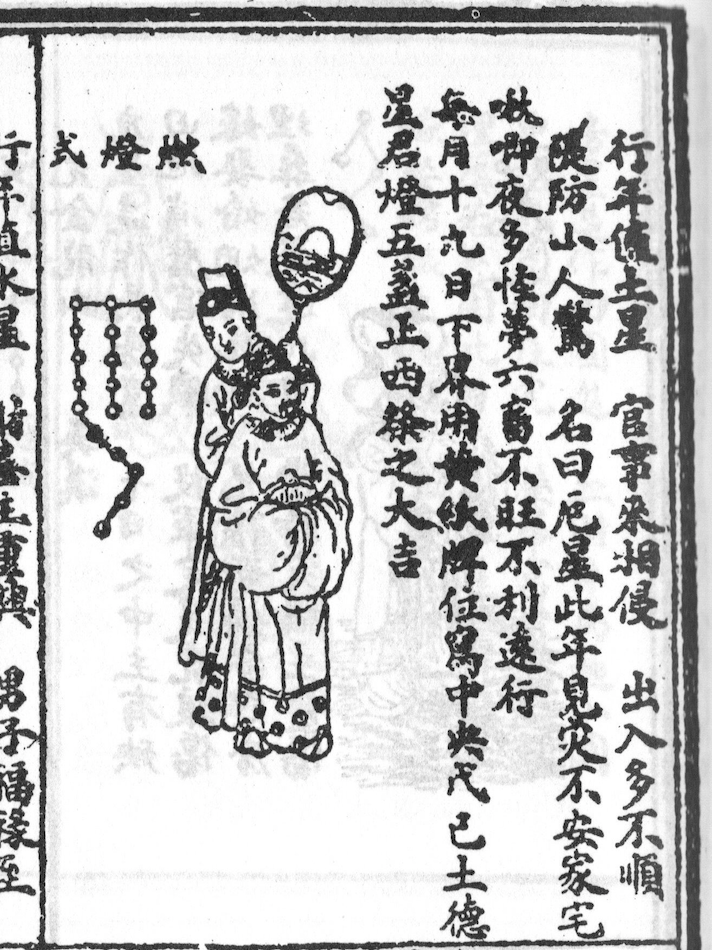 行年值土星 官事來相侵 出入多不順
隄防小人驚 名曰厄星此年見災不安家宅
啾唧夜多怪夢六畜不旺不利遠行
每月十九日下界用黃紙牌位寫中央戊己土德
星君燈五盞正西祭之大吉
燃燈式
行年值水星 財喜主重興 男子福祿至